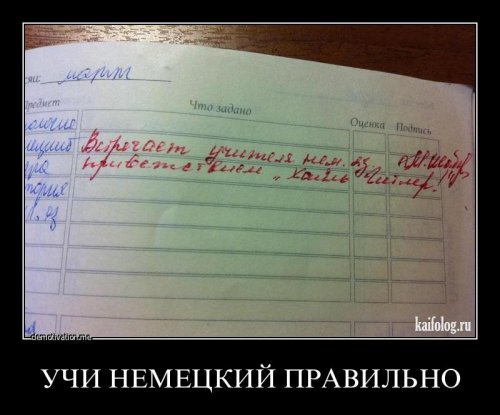 март
Предмет Что задано Оценка Подпись
Встречает учителя нем. яз
приветствием „Хайль Гитлер!"
kaifolog.ru
demotivation.me
УЧИ НЕМЕЦКИЙ ПРАВИЛЬНО